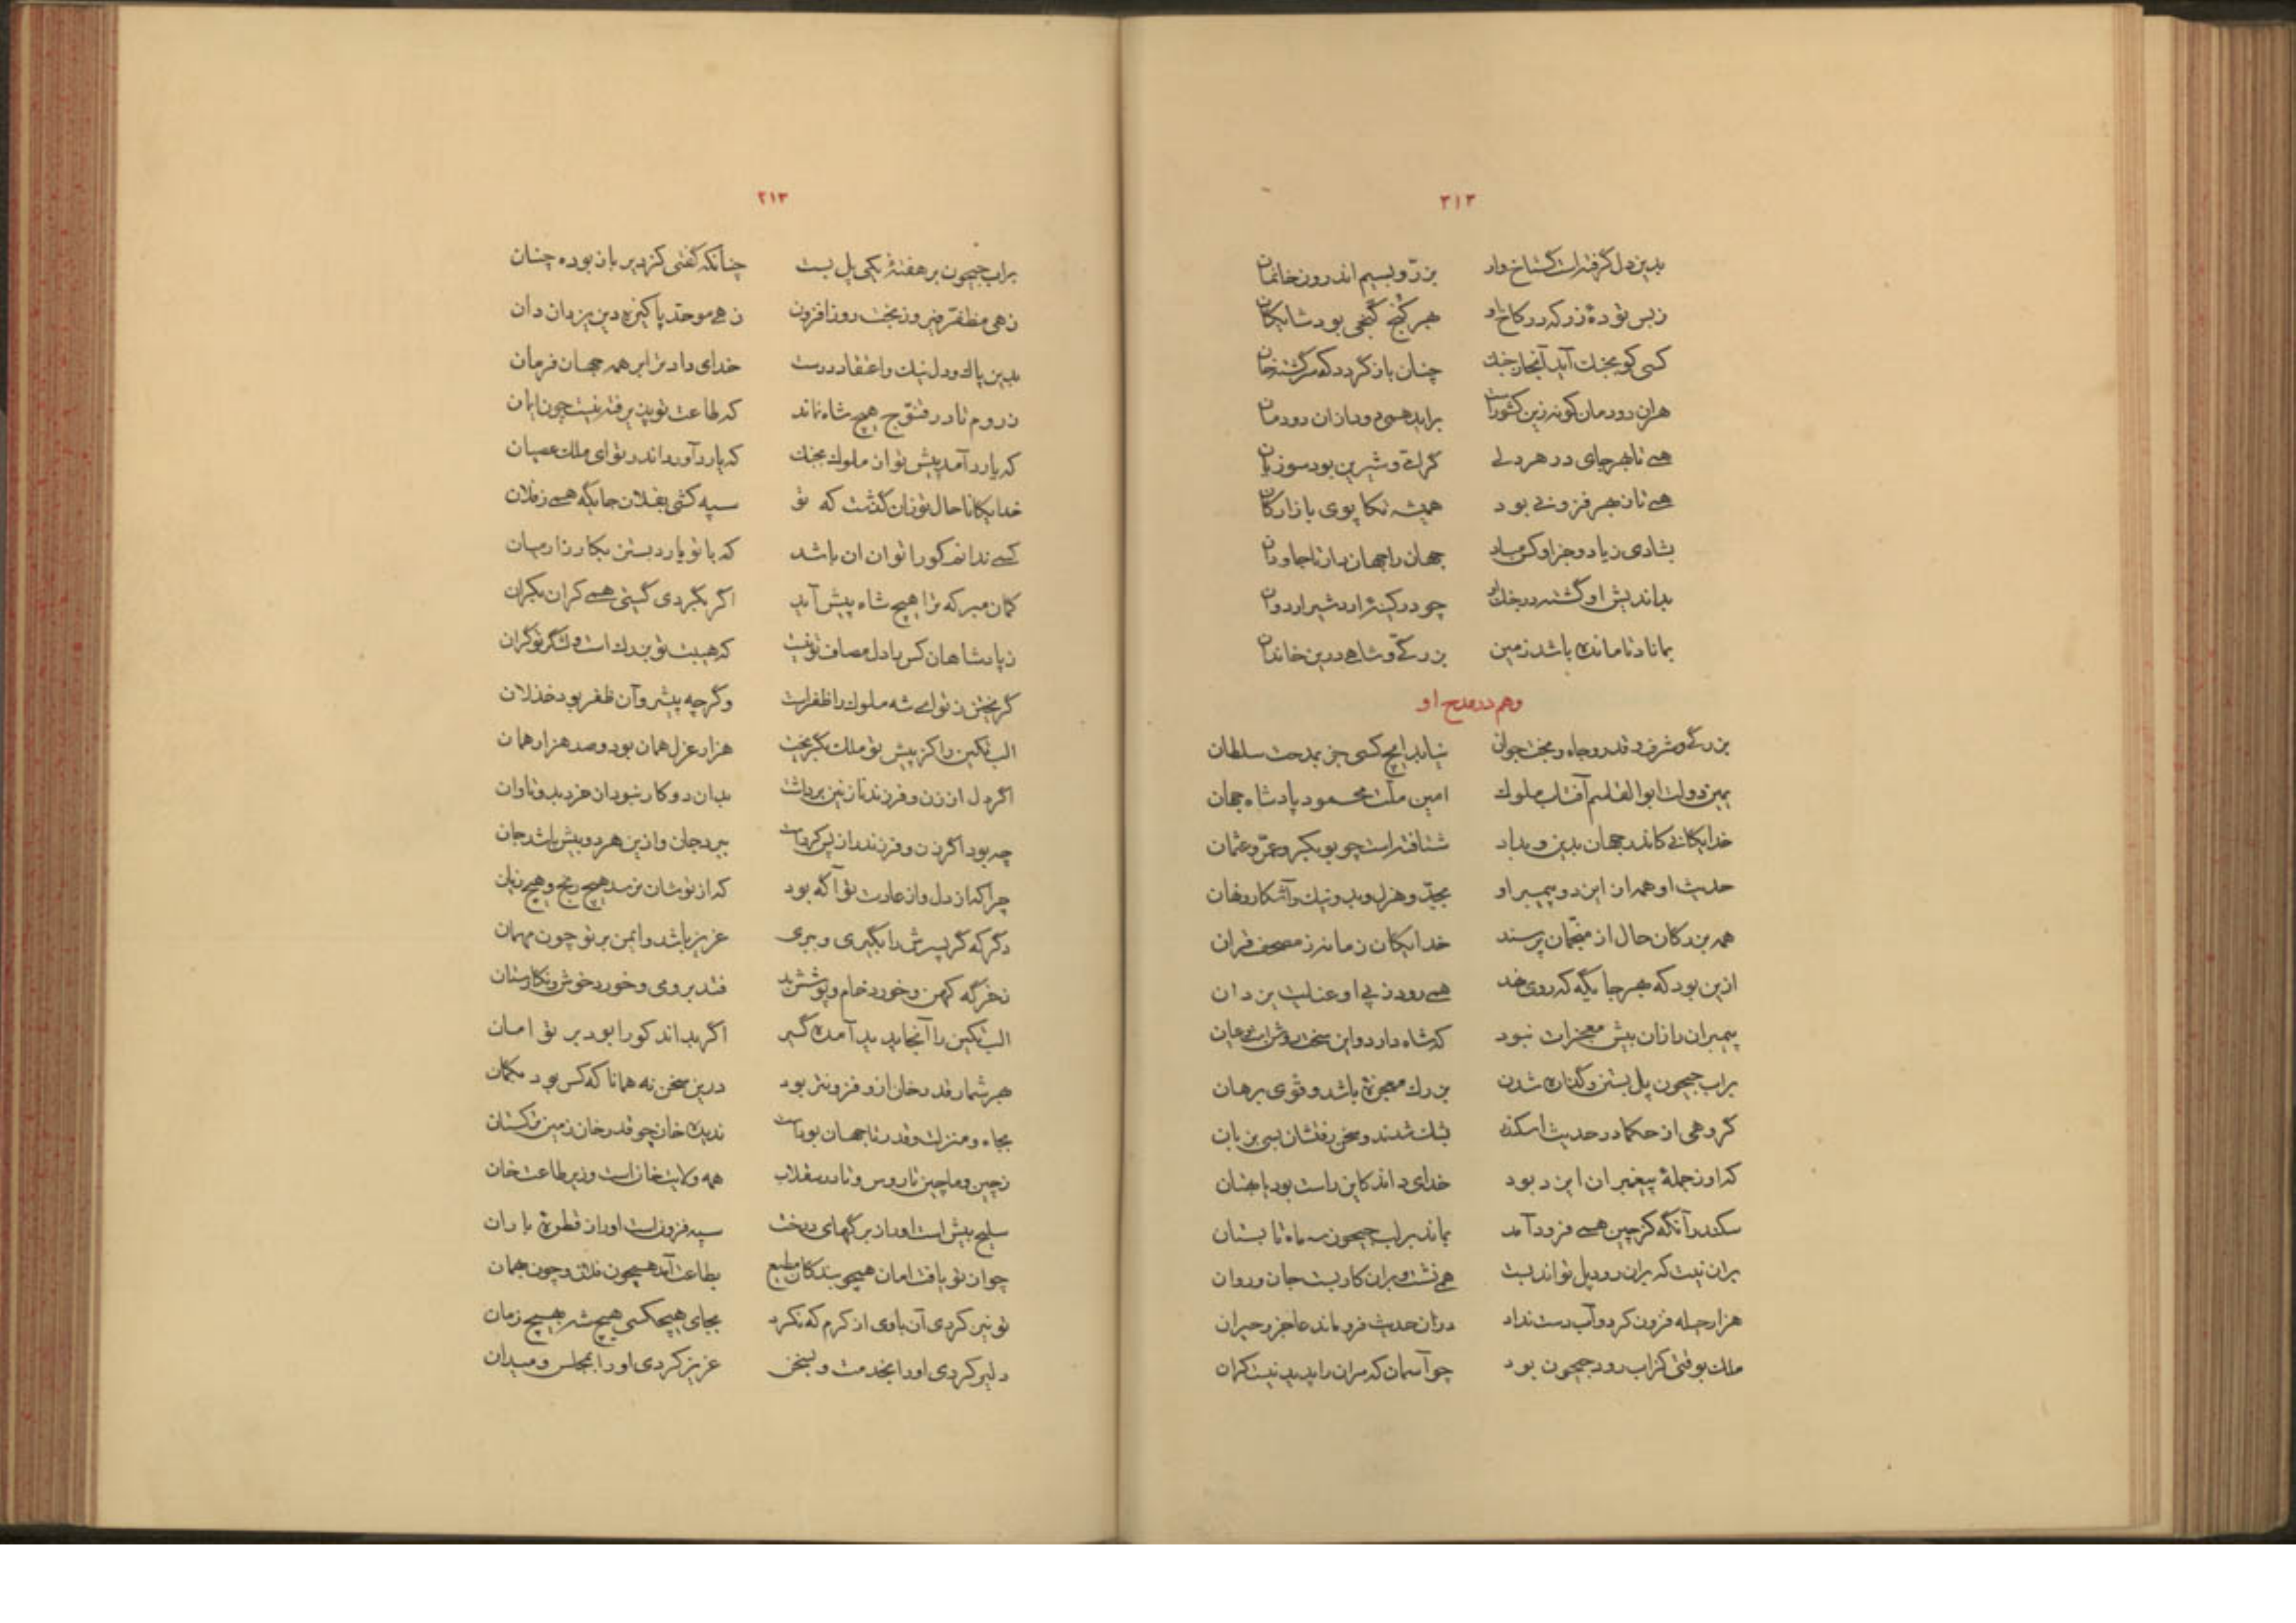 ۳۱۳
بدین دل گرفته است گستاخ وار بزر و بسیم اندرون خانمان
ز بس توده زر که در کاخ او بهر کنج گنجی بود شایکان
کسی کو بجنك آید آنجا ز جنك چنان باز کردد که سرکشته خان
هر ان دودمان کو نه زین کشور است براید همی دود ازان دودمان
همی تا بهر جای در هر دلی کرامی و شیرین بود سوزیان
همی تا ز بهر فزونی بود همیشه تکاپوی بازارکان
بشادی زیاد و جز او کس مباد جهان را جهاندار تا جاودان
بداندیش او کشته در جنك او چو در کینه اردشیر اردوان
بماناد تا مانده باشد زمین بزرکی و شاهی درین خاندان
وهم در مدح او
بزرکی و شرف و قدر و جاه و بخت جوان نیابد ایچ کسی جز بمدحت سلطان
یمین دولت ابوالقاسم آفتاب ملوك امین ملت محمود پادشاه جهان
خدایکانی کاندر جهان بدین و بداد شتافته است چو بوبکر و عمر و عثمان
حدیث او همه از ایزد و پیمبر او بجد و هزل و بد و نیك و آشکار و نهان
همه بزرکان حال از منجمان پرسند خدایکان زمانه ز مصحف قران
ازین بود که بهر جایکه که روی نهد همی رود ز پی او عنایت یزدان
پیمبران را زان بیش معجزات نبود که شاه دارد و این سخن روشن است و عیان
براب جیحون پل بستن و کذاره شدن بزرك معجزه باشد و قوی برهان
کروهی از حکما در حدیث اسکندر بشك شدند و سخن رفتشان بسی بزبان
که او ز جمله پیغمبران ایزد بود خدای داند کاین راست بود یا بهتان
سکندر آنکه کز چین همی فرود آمد بماند بر لب جیحون سه ماه تابستان
بران نیت که بران رود پل تواند بست همی نشست و بران کار بست جان و روان
هزار حیله فزون کرد و آب دست نداد دران حدیث فرو ماند عاجز و حیران
ملك بوقتی کزاب رود جیحون بود چو آسمان که مران را پدید نیست کران
۳۱۳
براب جیحون بر هفته یکی پل بست چنانکه کفتی کز دیر باز بوده چنان
زهی مظفر فیروز بخت روز افزون زهی موحد پاکیزه دین یزدان دان
بدین پاك و دل نیك و اعتقاد درست خدای داد ترا بر همه جهان فرمان
ز روم تا در قنوج هیچ شاه نماند که طاعت تو پذیرفته نیست چون ایمان
که یارد آمد پیش تو از ملوك بجنك که یارد آورد اندر تو ای ملك عصیان
خدایکانا حال تو زان کذشت که تو سپه کشی بفلان جایکه همی ز فلان
کسی نداند کو را توان ان باشد که با تو یارد بستن بکارزار میان
کمان مبر که ترا هیچ شاه پیش آید اکر بکردی کیتی همی کران بکران
ز پادشاهان کس با دل مصاف تو نیست که هیبت تو بزرك است و لشکر تو کران
کریختن ز تو ای شه ملوك را ظفر است و کر چه پیشرو آن ظفر بود خذلان
الب تکین را کز پیش تو ملك بکریخت هزار عزل همان بود و صد هزار همان
اکر دل از زن و فرزند نازنین برداشت بدان دو کار نبود از خرد بدو تاوان
چه بود اکر زن و فرزند را ز پس کرد است ببرد جان و ازین هر دو بیش باشد جان
چرا که از دل و از عادت تو آکه بود که از تو شان نرسد هیچ رنج و هیچ زیان
دکر که کر پسرش را بکیری و ببری عزیز باشد و ایمن بر تو چون مهمان
ز خرکه کهن و خورد خام و پوشش بد فتد بروی و خورد خوش و نکارستان
الب تکین را آنجا پدید آمده کیر اکر بداند کو را بود بر تو امان
بهر شمار قدر خان ازو فزونتر بود درین سخن نه همانا که کس بود بکمان
بجاه و منزلت و قدر تا جهان بوداست ندیده خان چو قدر خان زمین ترکستان
ز چین و ماچین تا روس و تا در سقلاب همه ولایت خانست و زیر طاعت خان
سلیح بیش است او را ز برکهای درخت سپه فزونست او را ز قطره باران
چو از تو یافت امان همچو بندکان مطیع بطاعت آمد همچون فلان و چون بهمان
تو نیز کردی آن با وی از کرم که نکرد بجای هیچکسی هیچ شه بهیچ زمان
دلیر کردی او را بخدمت و بسخن عزیز کردی او را بمجلس و میدان